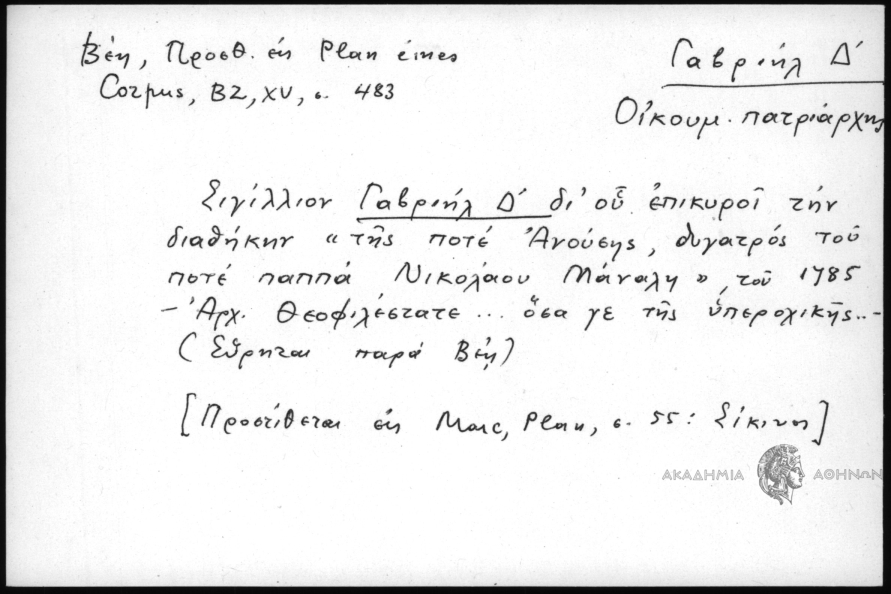 Βέη, Προσθ. εἰς Plan eines
Corpus, BZ, XV, σ. 483
Γαβριήλ Δ´
Οἰκουμ. πατριάρχης
Σιγίλλιον Γαβριήλ Δ´ δι' οὗ ἐπικυροῖ τήν
διαθήκην « τῆς ποτέ Ἀνούσης, θυγατρός τοῦ
ποτέ παππά Νικολάου Μάναλη », τοῦ 1785
- Ἀρχ. Θεοφιλέστατε ... ὅσα γε τῆς ὑπεροχικῆς..-
(Εὕρηται παρά Βέῃ)
[Προστίθεται εἰς Marc, Plan, σ. 55: Σίκινος]
ΑΚΑΔΗΜΙΑ ΑΘΗΝΩΝ